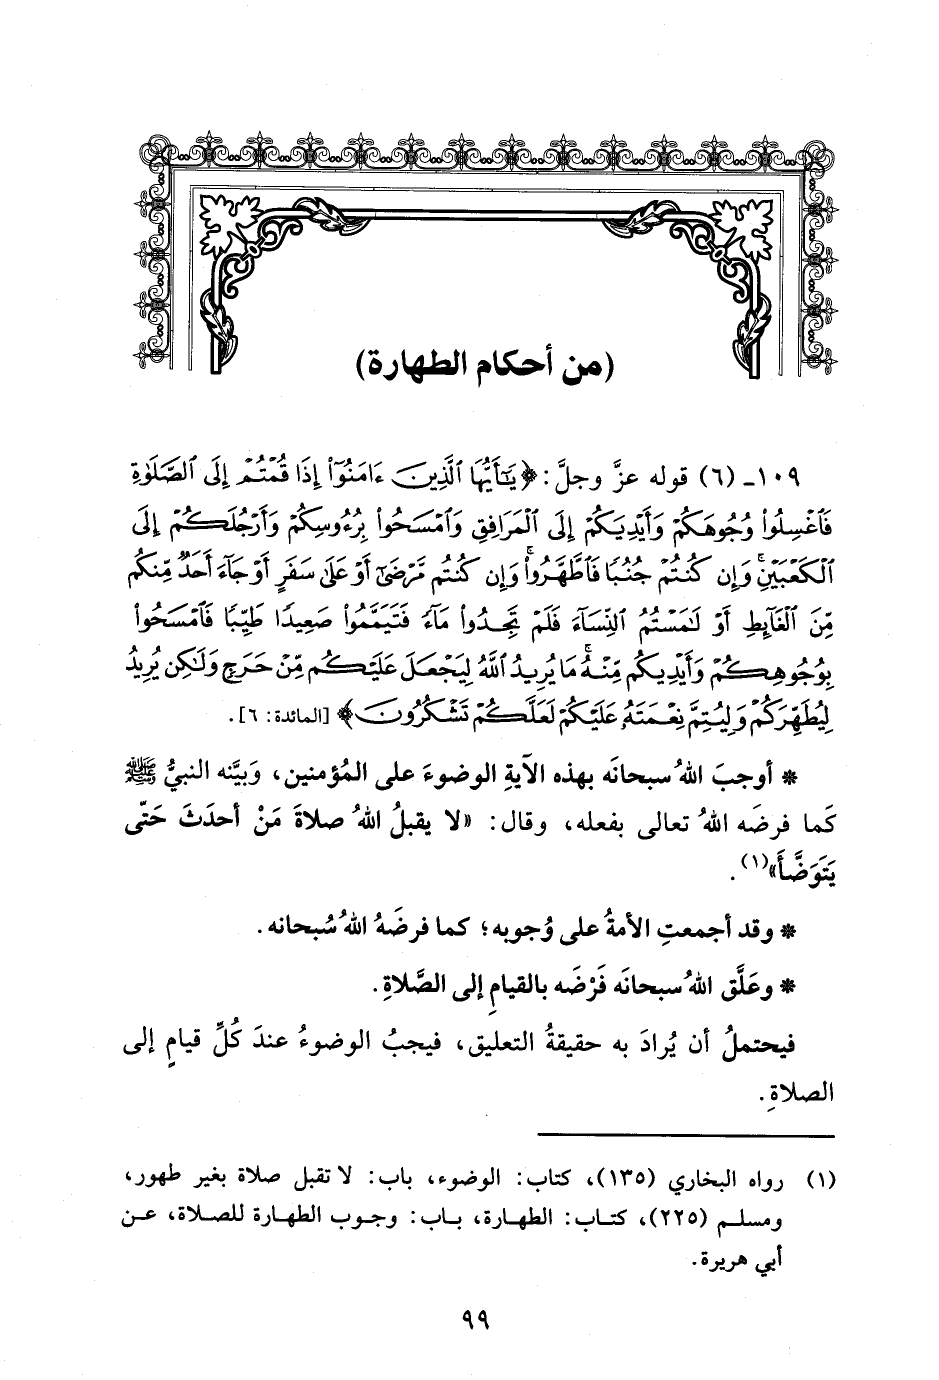 (من أحكام الطهارة)
١٠٩ـ (٦) قوله عزَّ وجلَّ: ﴿يَٰٓأَيُّهَا ٱلَّذِينَ ءَامَنُوٓا۟ إِذَا قُمْتُمْ إِلَى ٱلصَّلَوٰةِ
فَٱغْسِلُوا۟ وُجُوهَكُمْ وَأَيْدِيَكُمْ إِلَى ٱلْمَرَافِقِ وَٱمْسَحُوا۟ بِرُءُوسِكُمْ وَأَرْجُلَكُمْ إِلَى
ٱلْكَعْبَيْنِ ۚ وَإِن كُنتُمْ جُنُبًا فَٱطَّهَّرُوا۟ ۚ وَإِن كُنتُم مَّرْضَىٰٓ أَوْ عَلَىٰ سَفَرٍ أَوْ جَآءَ أَحَدٌ مِّنكُم
مِّنَ ٱلْغَآئِطِ أَوْ لَٰمَسْتُمُ ٱلنِّسَآءَ فَلَمْ تَجِدُوا۟ مَآءً فَتَيَمَّمُوا۟ صَعِيدًا طَيِّبًا فَٱمْسَحُوا۟
بِوُجُوهِكُمْ وَأَيْدِيكُم مِّنْهُ ۚ مَا يُرِيدُ ٱللَّهُ لِيَجْعَلَ عَلَيْكُم مِّنْ حَرَجٍ وَلَٰكِن يُرِيدُ
لِيُطَهِّرَكُمْ وَلِيُتِمَّ نِعْمَتَهُۥ عَلَيْكُمْ لَعَلَّكُمْ تَشْكُرُونَ﴾ [المائدة: ٦].
* أوجبَ اللهُ سبحانَه بهذه الآيةِ الوضوءَ على المُؤمنين، وَبيَّنه النبيُّ ﷺ
كَما فرضَه اللهُ تعالى بفعله، وقال: «لا يقبلُ اللهُ صلاةَ مَنْ أحدَثَ حَتّى
يَتَوَضَّأَ»(١).
* وقد أجمعتِ الأمةُ على وُجوبه؛ كما فرضَهُ اللهُ سُبحانه.
* وعَلَّق اللهُ سبحانَه فَرْضَه بالقيامِ إلى الصَّلاةِ.
فيحتملُ أن يُرادَ به حقيقةُ التعليق، فيجبُ الوضوءُ عندَ كُلِّ قيامٍ إلى
الصلاةِ.
(١) رواه البخاري (١٣٥)، كتاب: الوضوء، باب: لا تقبل صلاة بغير طهور،
ومسلم (٢٢٥)، كتاب: الطهارة، باب: وجوب الطهارة للصلاة، عن
أبي هريرة.
٩٩